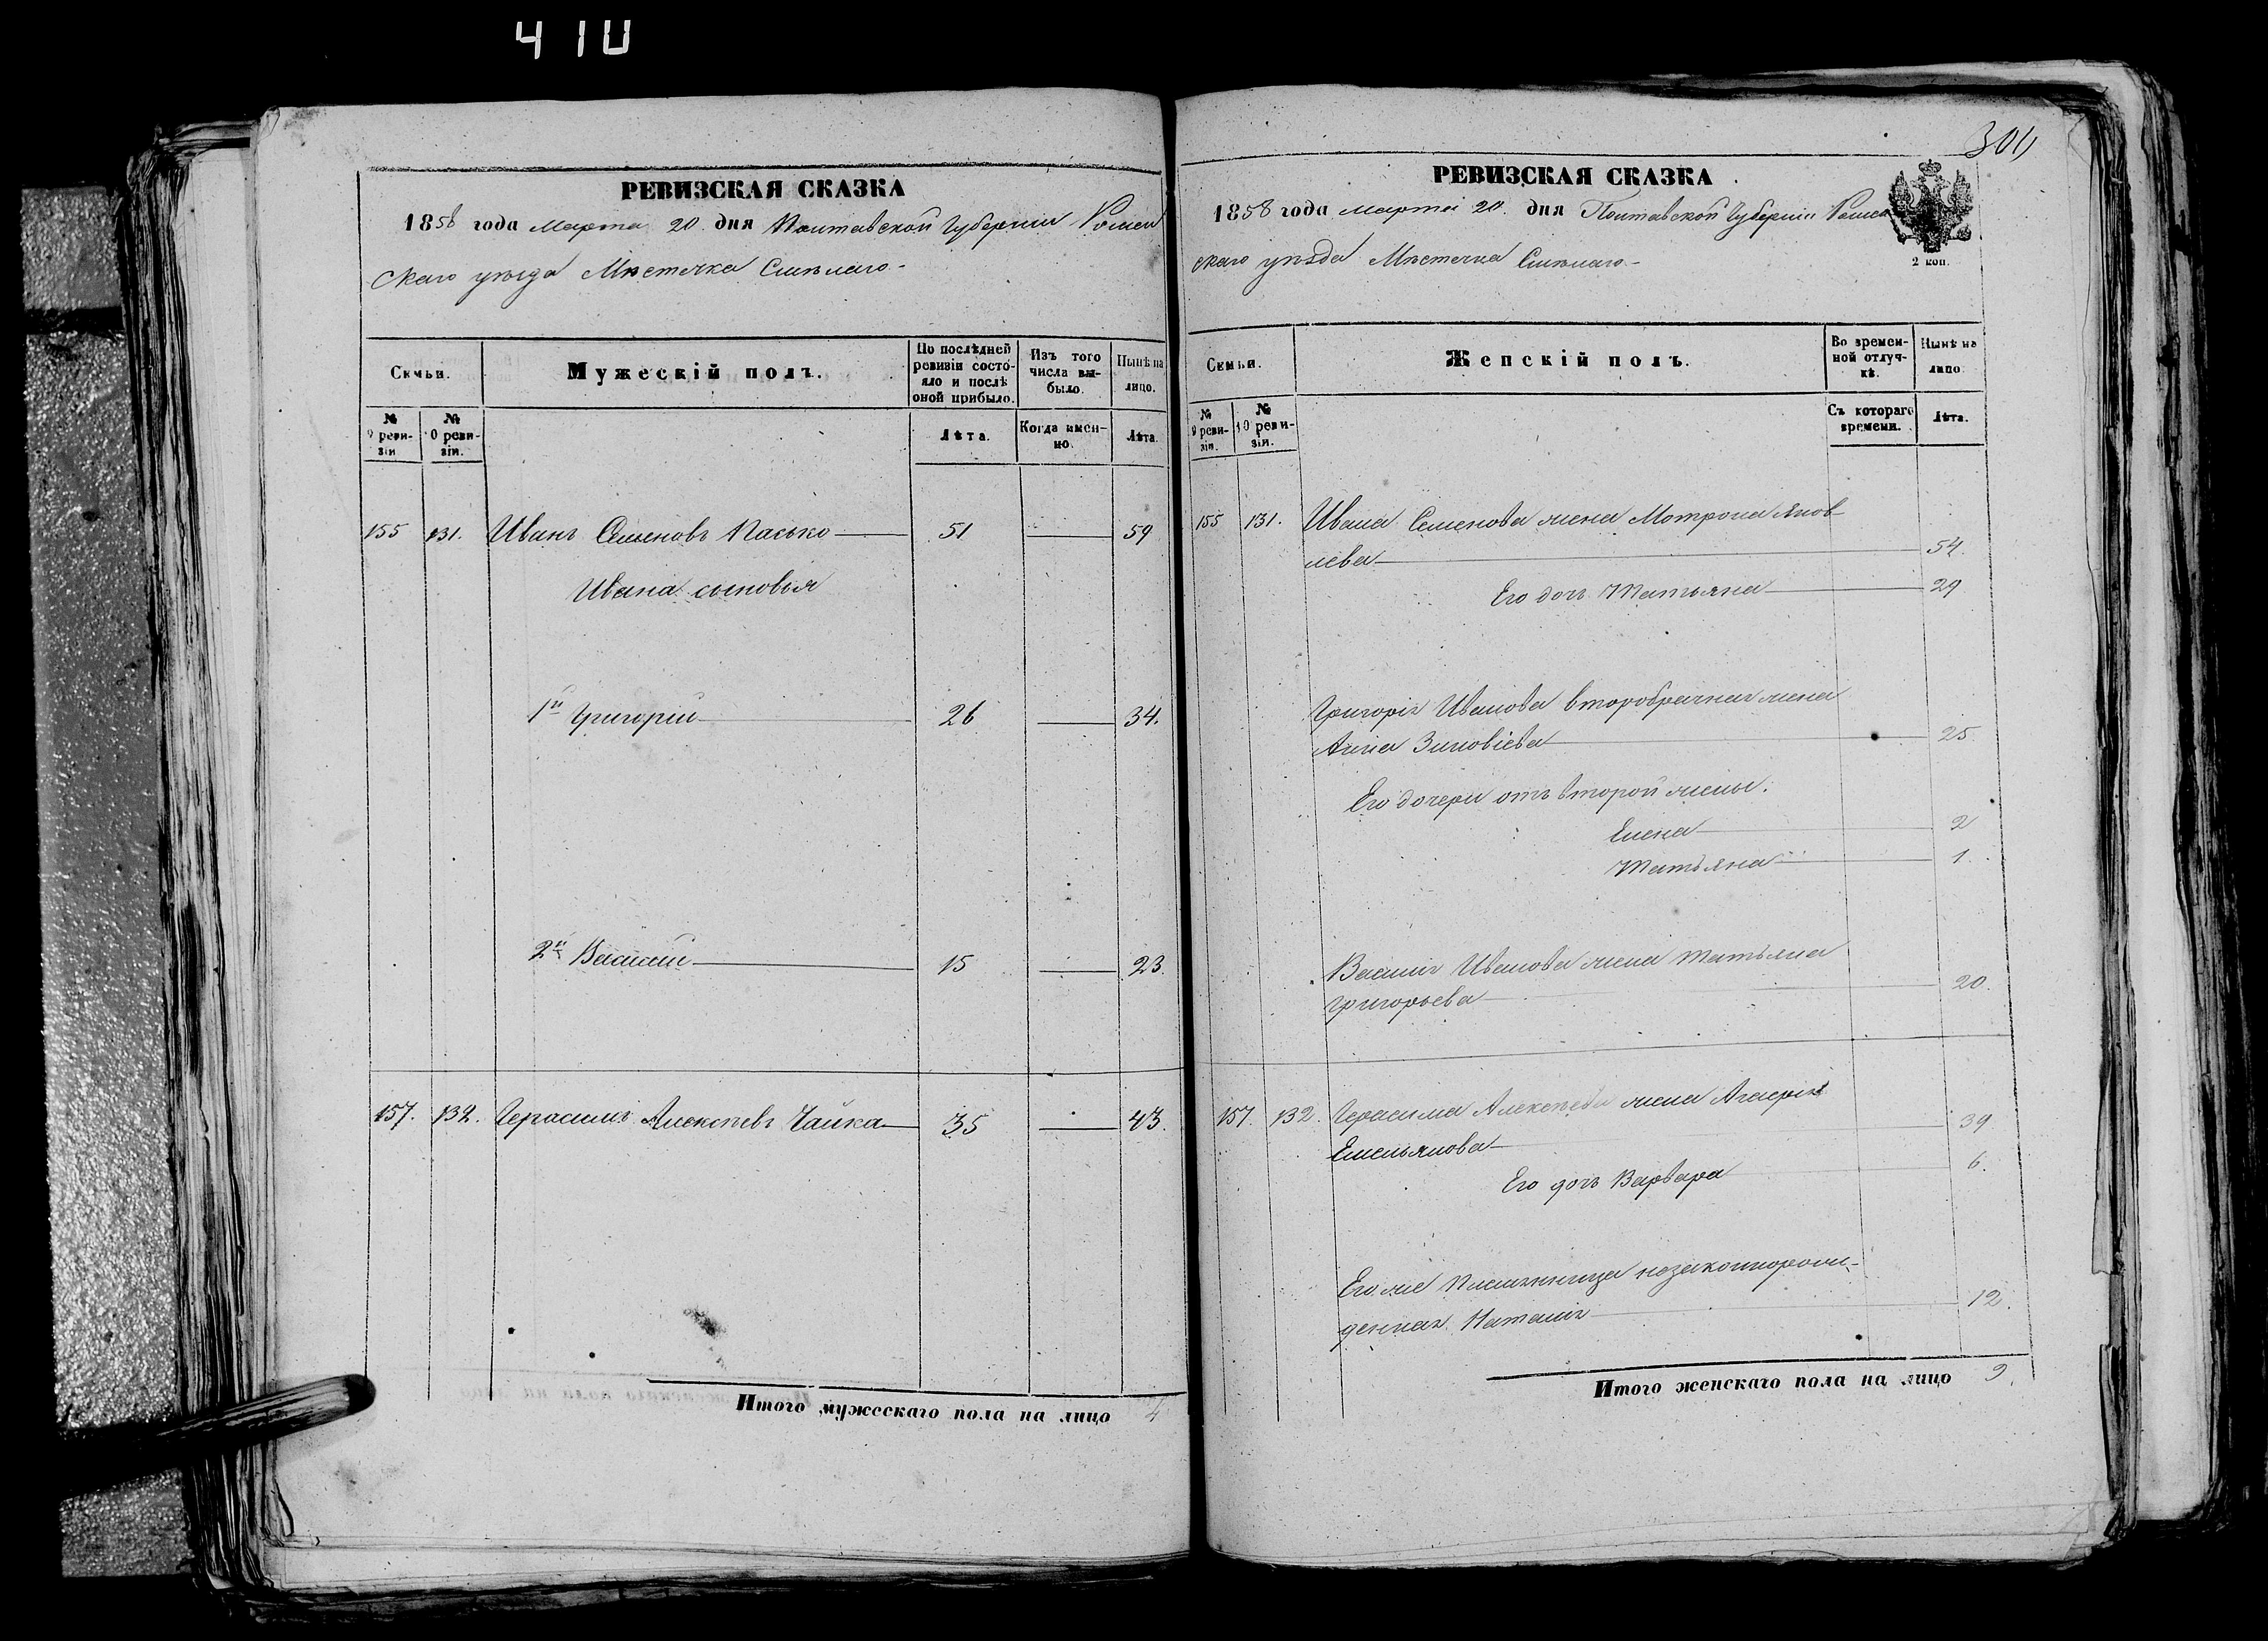 410
РЕВИЗСКАЯ СКАЗКА
1858 года Марта 20 дня Полтавской Губернии Ромен
скаго уѣзда Мѣстечка Смѣлаго
Семьи.
Мужескій полъ.
По послѣдней ревизіи состояло и послѣ оной прибыло.
Изъ того числа выбыло.
Нынѣ на лицо.
№ 9 ревизіи
№ 10 ревизіи.
Лѣта.
Когда именно.
Лѣта.
155 131. Иванъ Семеновъ Пасько 51 59
Ивана сыновья
1й Григорій 26 34.
2й Василій 15 23.
157. 132. Герасимъ Алексѣевъ Чайка 35 43.
Итого мужескаго пола на лицо 4
306
РЕВИЗСКАЯ СКАЗКА
1858 года Марта 20. дня Полтавской Губерніи Ромен
скаго уѣзда Мѣстечка Смѣлаго
2 коп.
Семьи.
Женскій полъ.
Во временной отлучкѣ.
Нынѣ на лицо.
№ 9 ревизіи.
№ 10 ревизіи.
Съ котораго времени.
Лѣта.
155 131. Ивана Семенова жена Мотрона Яков
лева 54.
Его дочь Татьяна 29
Григорія Иванова второбрачная жена
Анна Зиновіева 25.
Его дочери отъ второй жены.
Елена 2
Татьяна 1.
Василія Иванова жена Татьяна
Григорьева 20.
157. 132. Герасима Алексѣева жена
Емельянова 39
Его дочь Варвара 6.
Его же Племянница незаконнорож-
денная Наталія 12.
Итого женскаго пола на лицо 9.